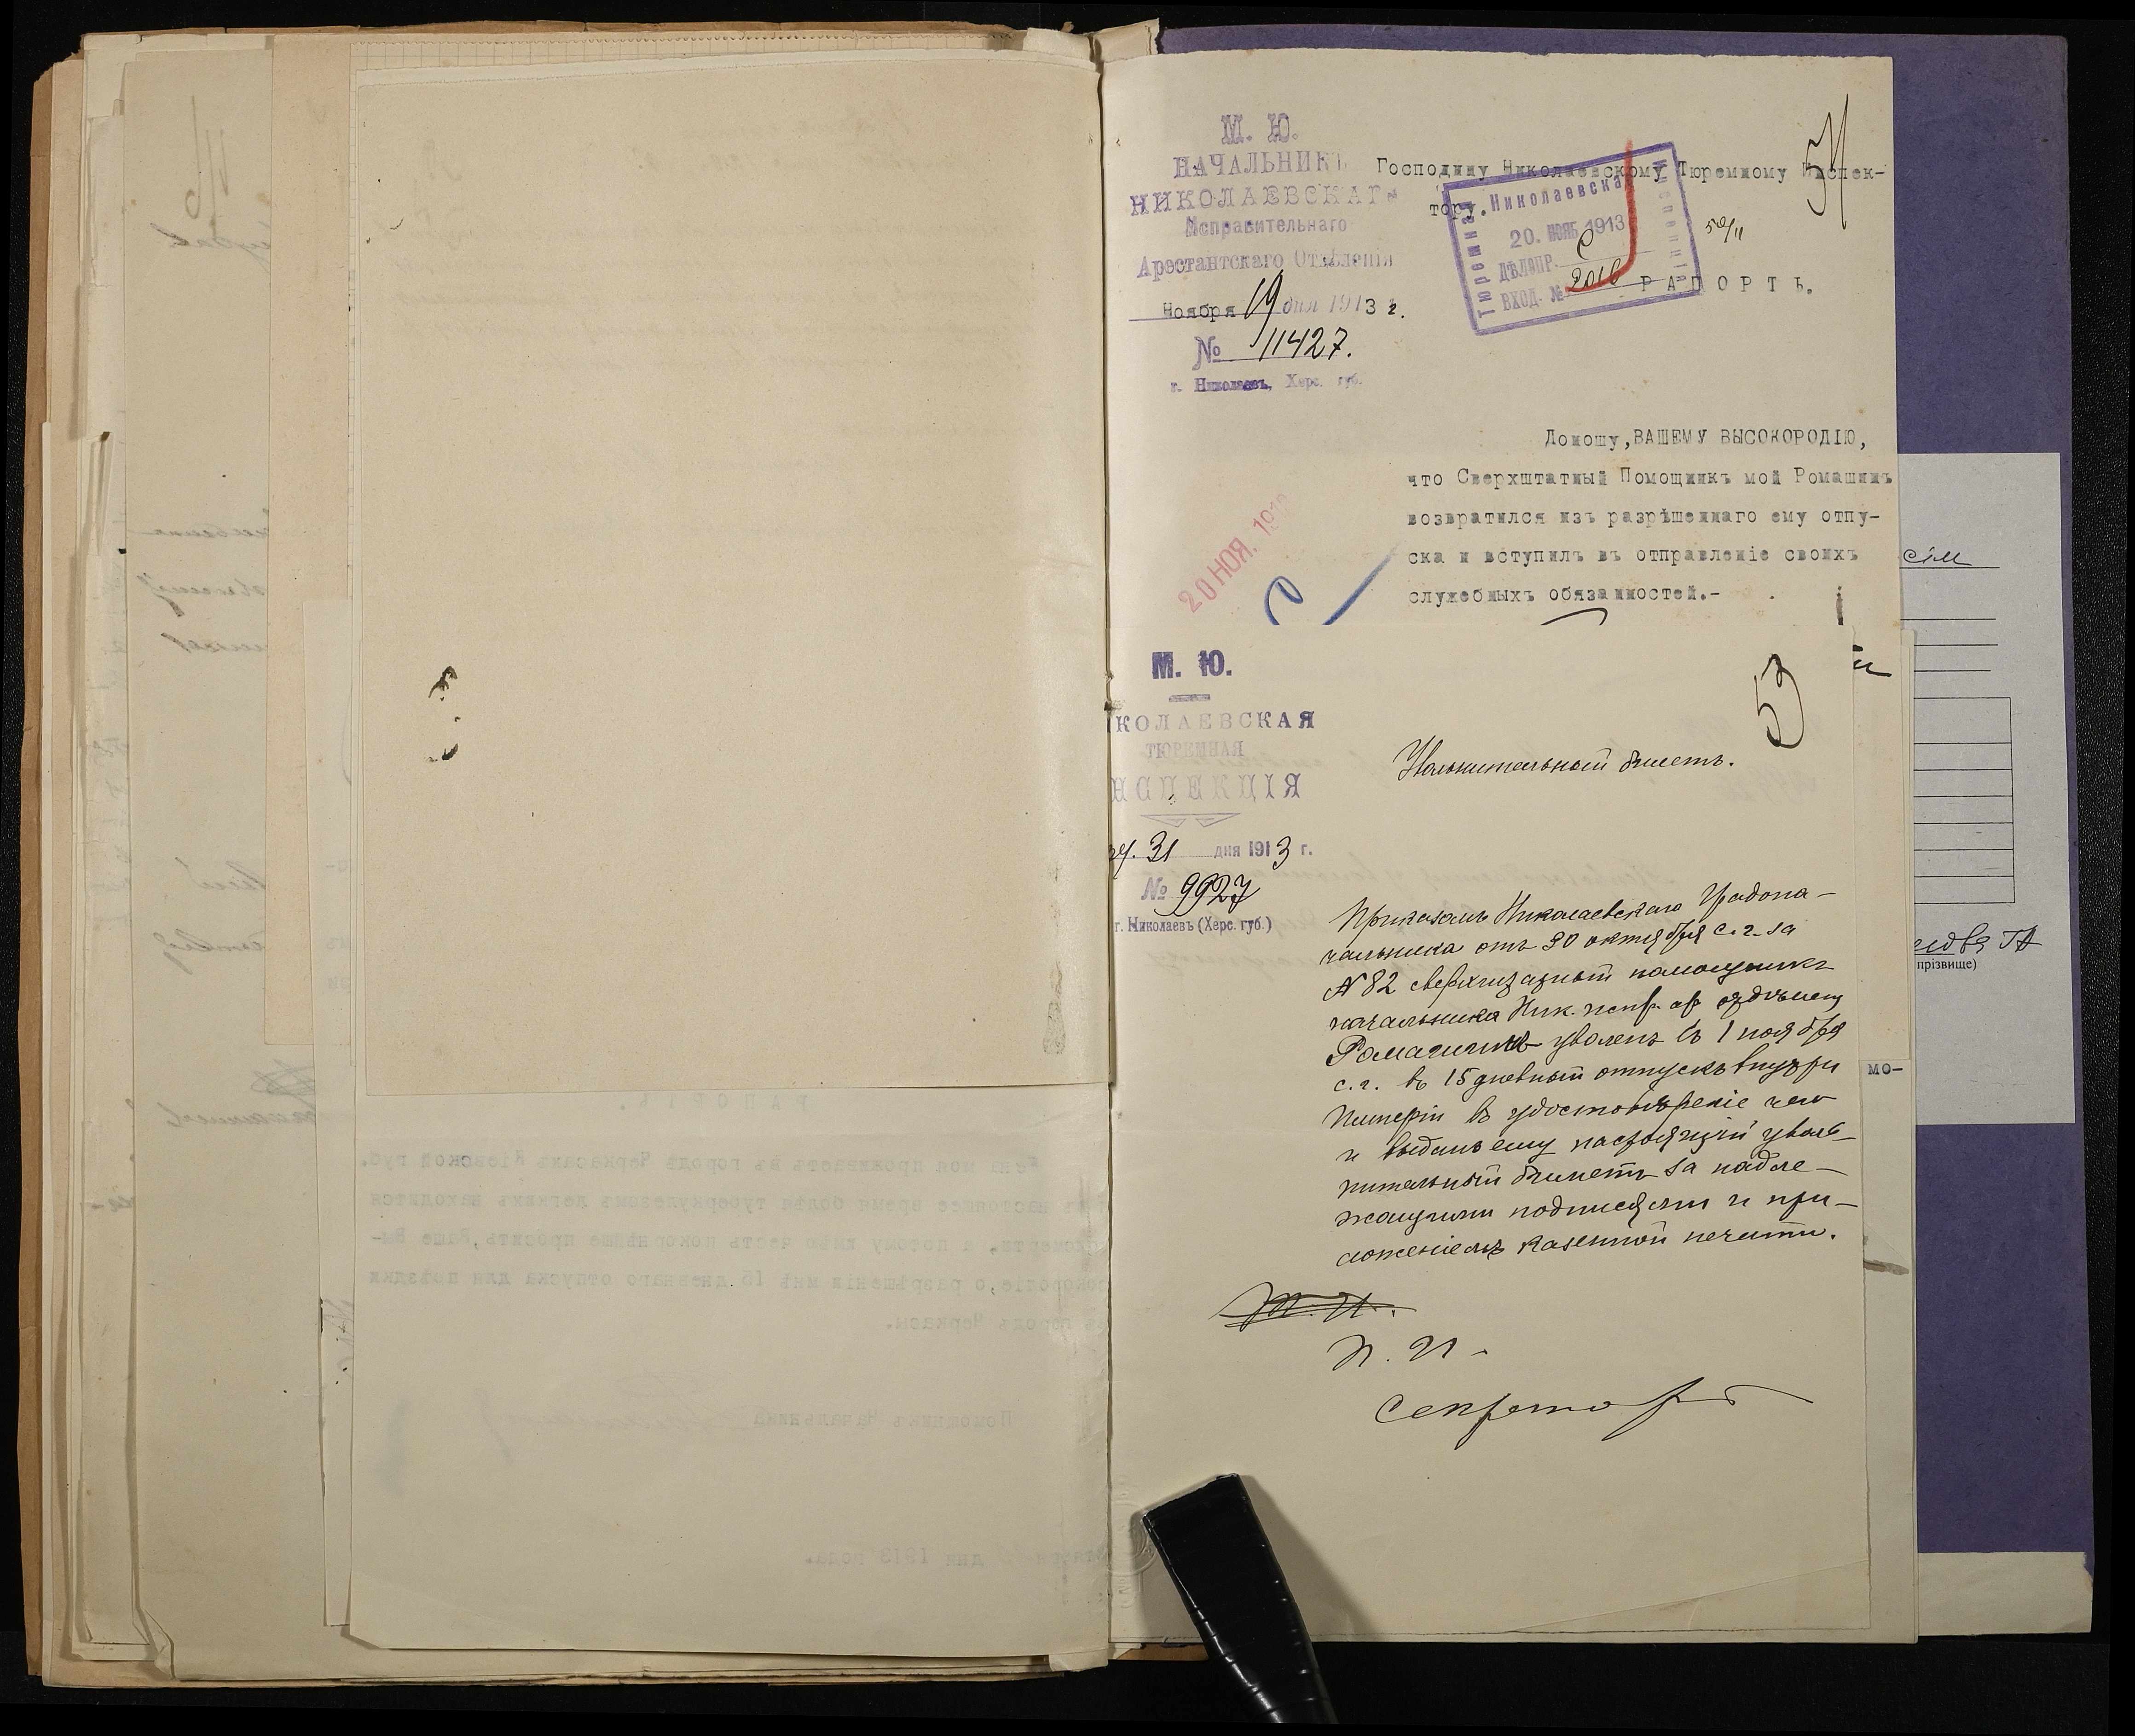 М. Ю.
НАЧАЛЬНИКЪ
НИКОЛАЕВСКАГО
Исправительнаго
Арестантскаго Отдѣленія
Ноября 19 дня 1913 г.
№ 11427.
г. Николаевъ, Херс. губ.
54
Господину Николаевскому Тюремному Инспек-
тору.
Николаевска
Тюремная
Инспекція
20. НОЯБ 1913
ДѢЛОПР. С
ВХОД. № 2010
РАПОРТЪ.
Доношу, ВАШЕМУ ВЫСОКОРОДІЮ,
что Сверхштатный Помощникъ мой Ромашинъ
возвратился изъ разрѣшеннаго ему отпу-
ска и вступилъ въ отправленіе своихъ
служебныхъ обязанностей.-
20 НОЯ. 191
53
М. Ю.
КОЛАЕВСКАЯ
ТЮРЕМНАЯ
НСПЕКЦІЯ
31 дня 1913 г.
№ 9927
г. Николаевъ (Херс. губ.)
Увольнительный билетъ.
Приказомъ Николаевскаго Градона-
чальника отъ 30 октября с. г. за
N 82 сверхштатный помощникъ
начальника Ник. испр. ар отдѣленія
Ромашинъ уволенъ съ 1 ноября
с. г. въ 15 дневный отпускъ внутри
Имперіи въ удостовѣреніе чего
и выданъ ему настоящій уволь-
нительный билетъ за надле-
жащими подписями и при-
ложеніемъ казенной печати.
Т. И.
Т. И.
Секретарь
мо-
сім
прізвище)
РАПОРТЪ.
Жена моя проживаетъ въ городѣ Черкасахъ Кіевской губ.
настоящее время болѣя туберкулезомъ легкихъ находится
смерти, а потому имѣю честь покорнѣйше просить, Ваше Вы-
сокородіе, о разрѣшеніи мнѣ 15 дневнаго отпуска для поѣздки
въ городъ Черкасы.
Помощникъ Начальника
дня 1913 года.